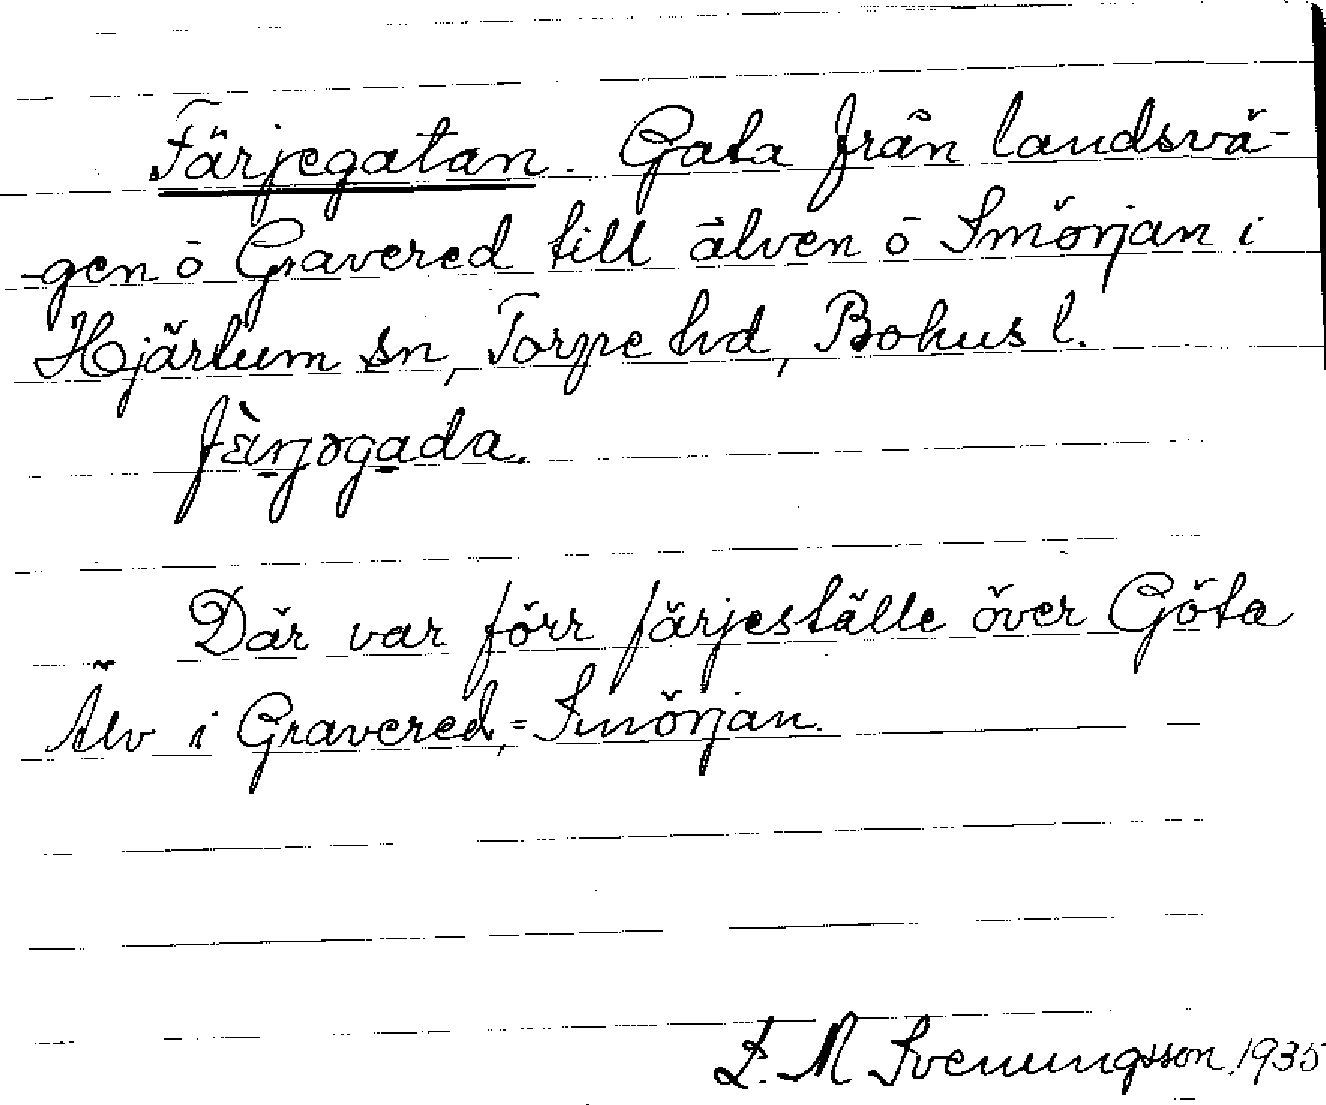 Färjegatan. Gata från landsvä-
-gen ö Gravered till älven ö Smörjan i
Hjärtum sn, Torpe hd, Bohus l.
fæ̀rjogada.
Där var förr färjeställe över Göta
Älv i Gravered,=Smörjan.
L. M Svenungsson, 1935